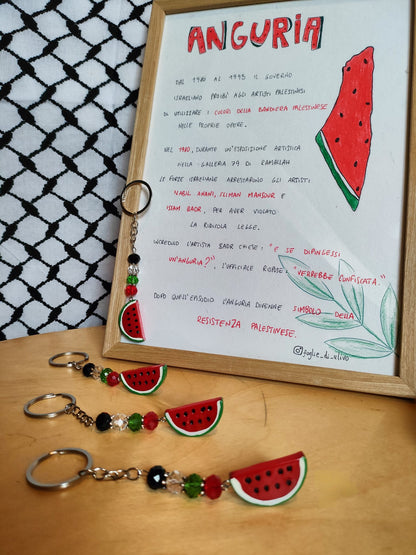 ANGURIA
DAL 1980 AL 1993 IL GOVERNO
ISRAELIANO PROIBÌ AGLI ARTISTI PALESTINESI
DI UTILIZZARE I COLORI DELLA BANDIERA PALESTINESE
NELLE PROPRIE OPERE.
NEL 1980, DURANTE UN'ESPOSIZIONE ARTISTICA
NELLA GALLERIA 79 DI RAMALLAH
LE FORZE ISRAELIANE ARRESTARONO GLI ARTISTI
NABIL ANANI, SLIMAN MANSOUR E
ISSAM BADR, PER AVER VIOLATO
LA RIDICOLA LEGGE.
INCREDULO L'ARTISTA BADR CHIESE: "E SE DIPINGESSI
UN'ANGURIA?", L'UFFICIALE RISPOSE: "VERREBBE CONFISCATA."
DOPO QUELL'EPISODIO L'ANGURIA DIVENNE SIMBOLO DELLA
RESISTENZA PALESTINESE.
foglie_di_ulivo